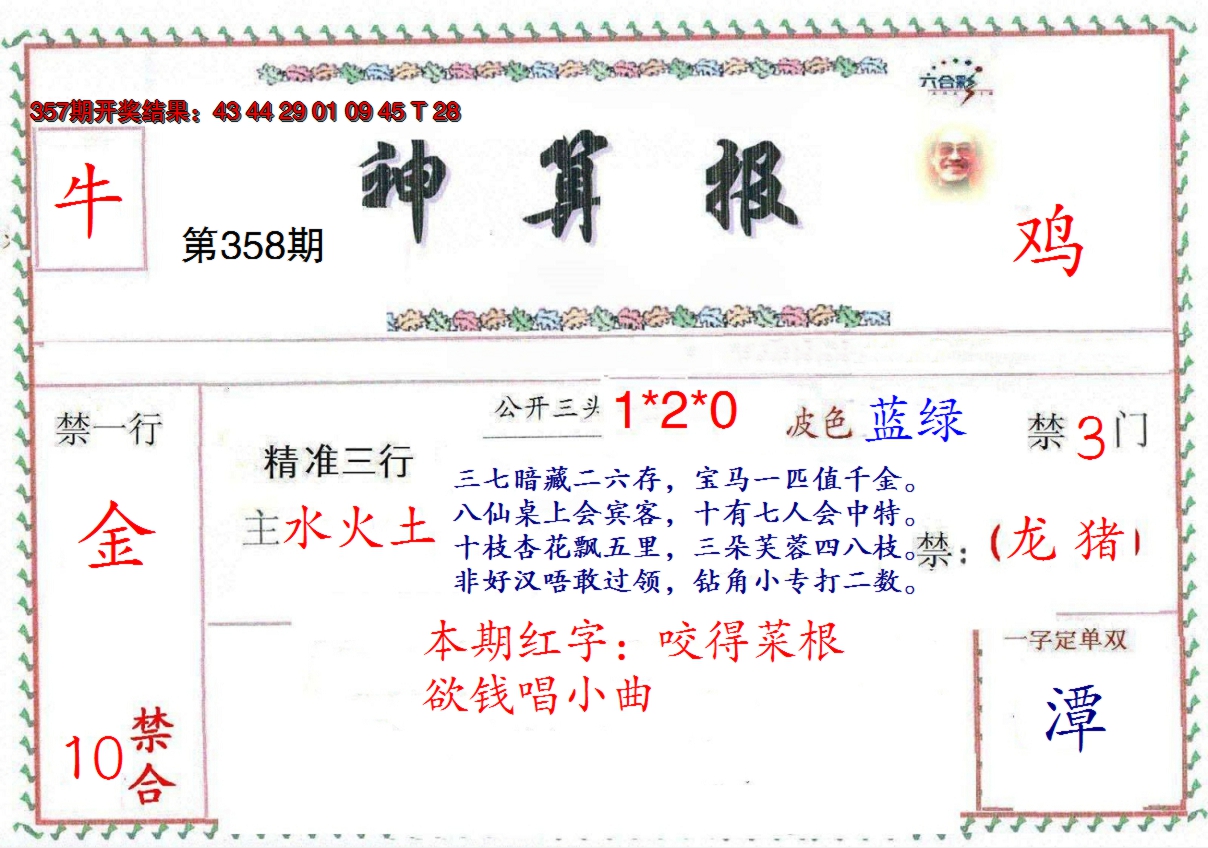 六合彩
357期开奖结果：43 44 29 01 09 45 T 28
神算报
牛
第358期
鸡
禁一行
金
10禁合
精准三行
主水火土
公开三头 1*2*0
波色 蓝绿
禁3门
三七暗藏二六存，宝马一匹值千金。
八仙桌上会宾客，十有七人会中特。
十枝杏花飘五里，三朵芙蓉四八枝。
非好汉唔敢过领，钻角小专打二数。
禁：（龙 猪）
本期红字：咬得菜根
欲钱唱小曲
一字定单双
潭